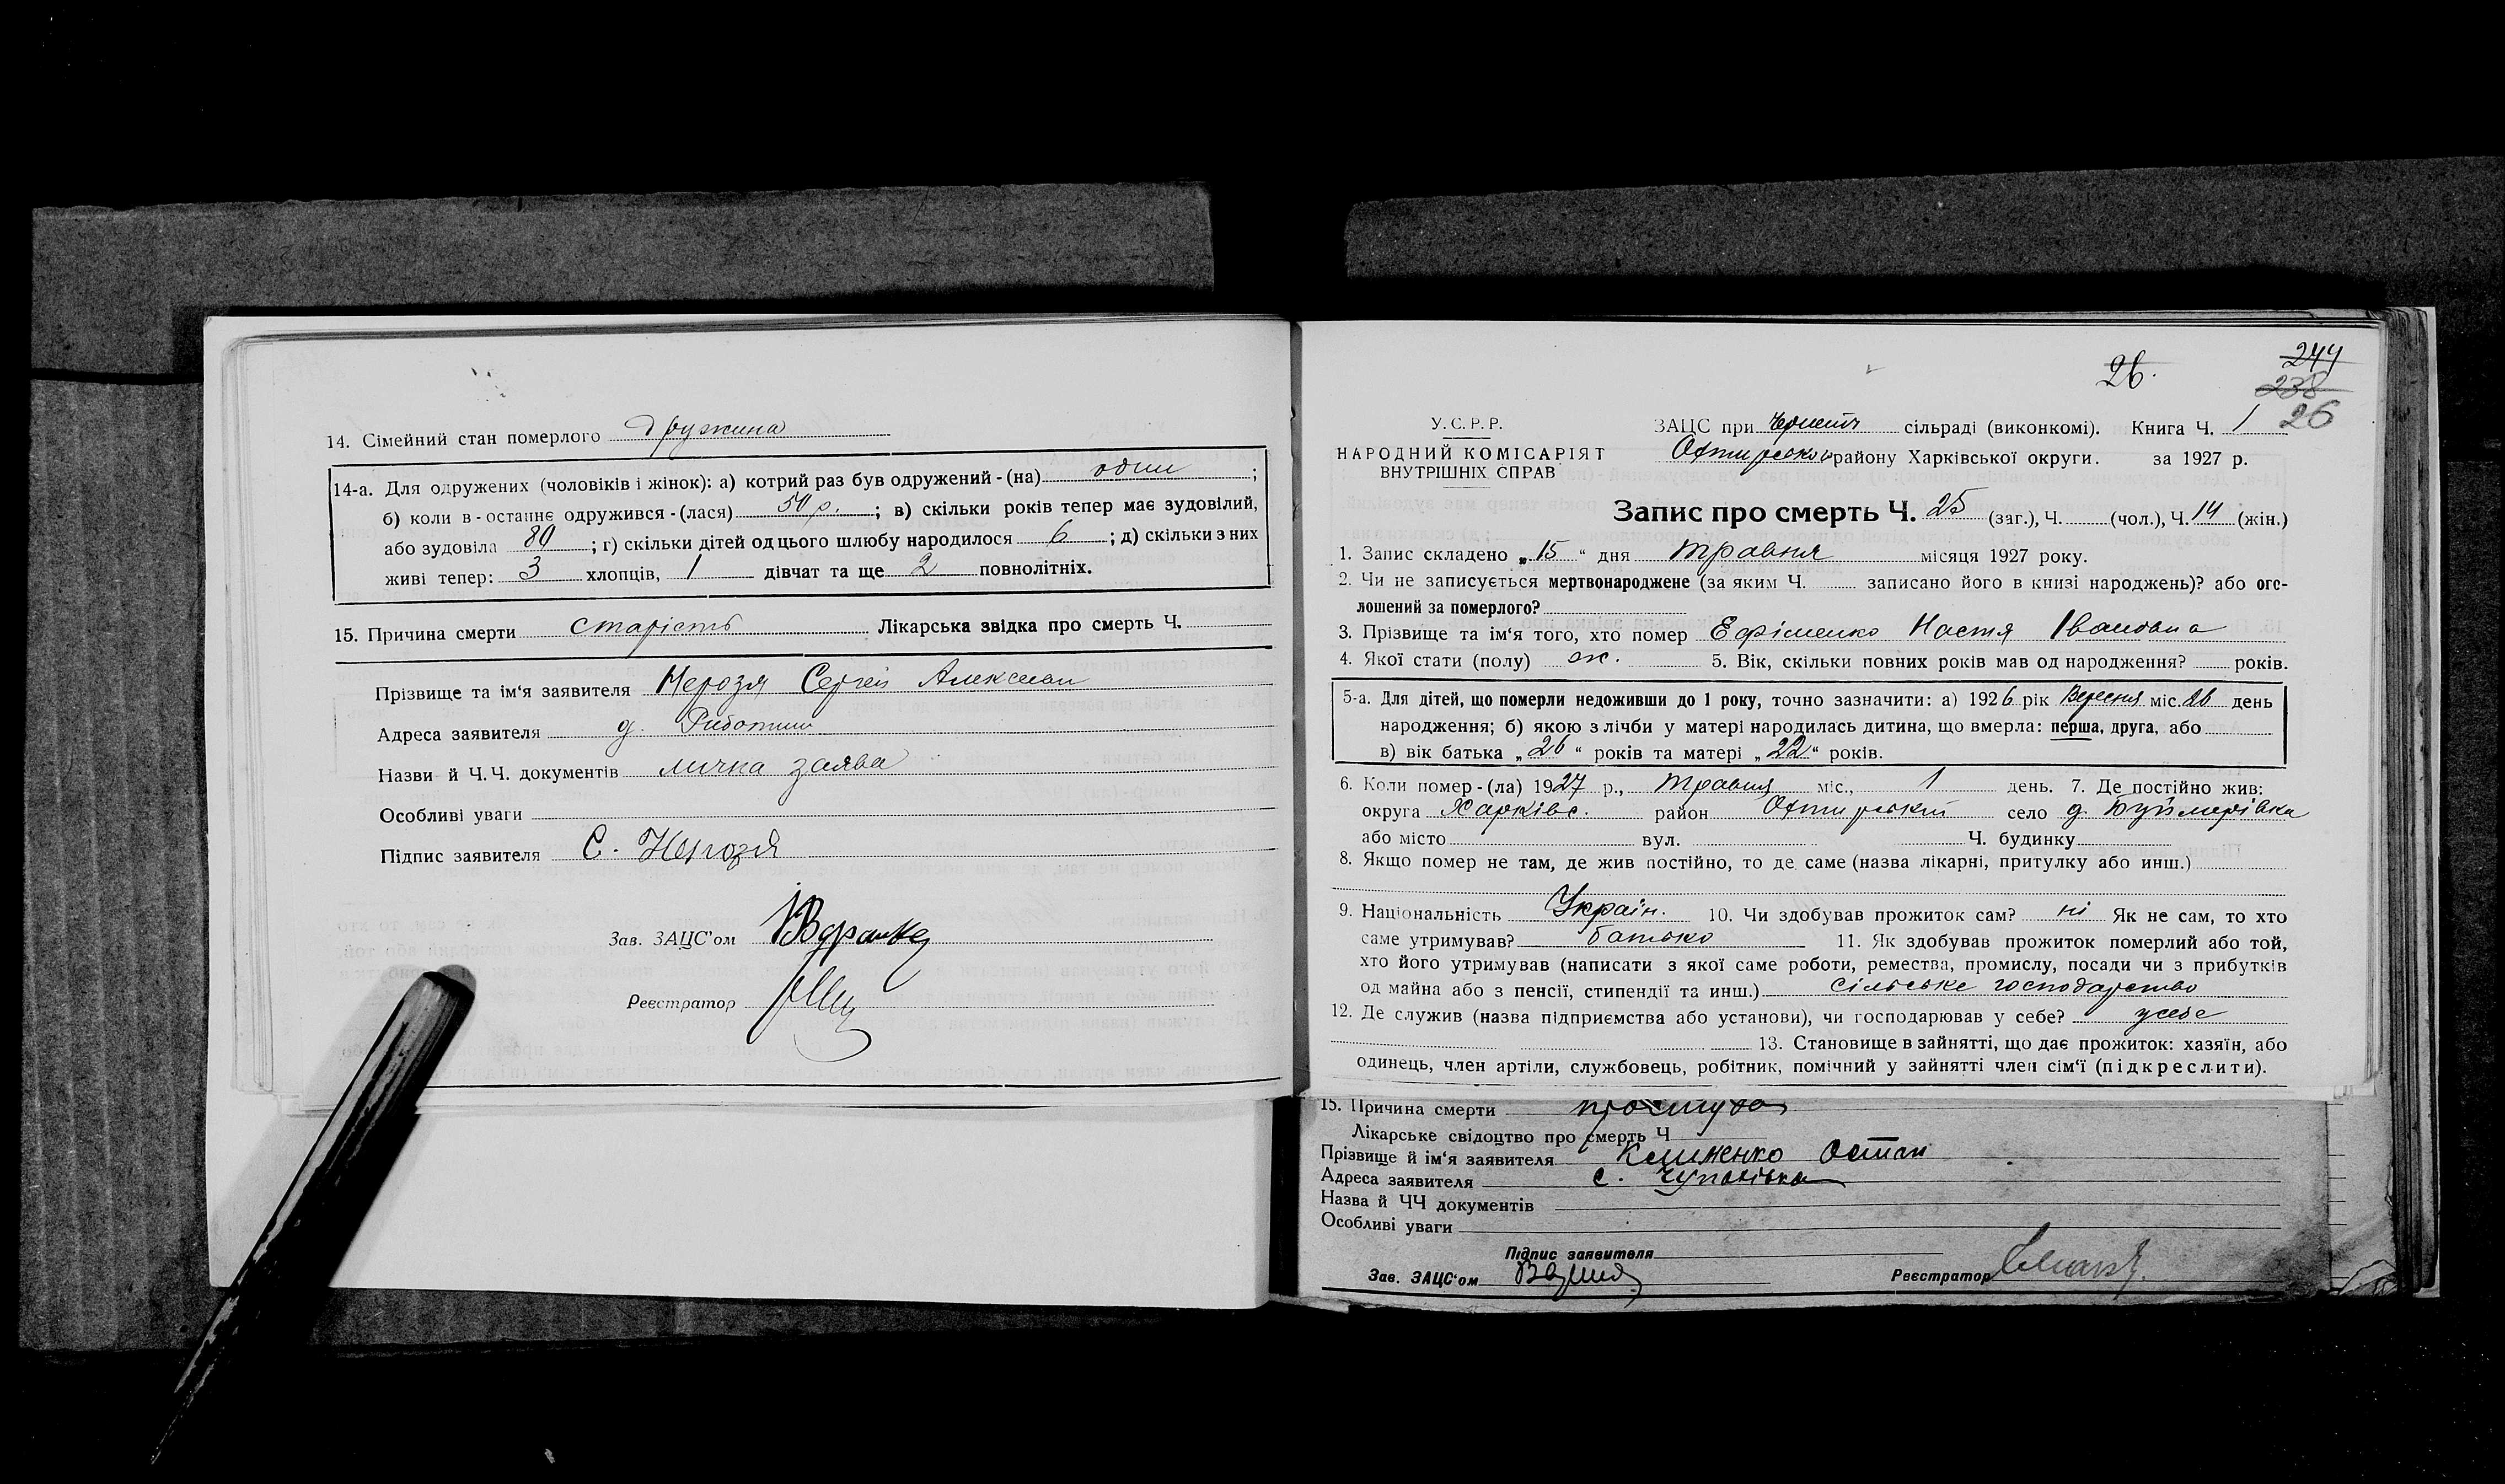 14. Сімейний стан померлого дружина
14-а. Для одружених (чоловіків і жінок): а) котрий раз був одружений-(на) один ;
б) коли в-останнє одружився-(лася) 50 р. ; в) скільки років тепер має зудовілий,
або зудовіла 80 ; г) скільки дітей од цього шлюбу народилося 6 ; д) скільки з них
живі тепер: 3 хлопців, 1 дівчат та ще 2 повнолітніх.
15. Причина смерти старість Лікарська звідка про смерть Ч.
Прізвище та ім'я заявителя Нерозя Сергей Алексеев
Адреса заявителя д.
Назви й Ч.Ч. документів лична заява
Особливі уваги
Підпис заявителя С. Нерозя
Зав. ЗАЦС'ом
Реєстратор
26.
244
238
26
У.С.Р.Р.
НАРОДНИЙ КОМІСАРІЯТ
ВНУТРІШНІХ СПРАВ
ЗАЦС при сільраді (виконкомі). Книга Ч. 1
Охтирського району Харківської округи. за 1927 р.
Запис про смерть Ч. 25 (заг.), Ч. (чол.), Ч. 14 (жін.)
1. Запис складено „15“ дня травня місяця 1927 року.
2. Чи не записується мертвонароджене (за яким Ч. записано його в книзі народжень)? або ого-
лошений за померлого?
3. Прізвище та ім'я того, хто помер Ефіменко Настя Івановна
4. Якої стати (полу) ж. 5. Вік, скільки повних років мав од народження? років.
5-а. Для дітей, що померли недоживши до 1 року, точно зазначити: а) 1926 рік Вересня міс. 26 день
народження; б) якою з лічби у матері народилась дитина, що вмерла: перша, друга, або
в) вік батька „26“ років та матері „22“ років.
6. Коли помер-(ла) 1927 р., травня міс., 1 день. 7. Де постійно жив:
округа Харківс. район Охтирський село д. Буймерівка
або місто вул. Ч. будинку
8. Якщо помер не там, де жив постійно, то де саме (назва лікарні, притулку або инш.)
9. Національність Україн. 10. Чи здобував прожиток сам? ні Як не сам, то хто
саме утримував? батько 11. Як здобував прожиток померлий або той,
хто його утримував (написати з якої саме роботи, ремества, промислу, посади чи з прибутків
од майна або з пенсії, стипендії та инш.) сільське господарство
12. Де служив (назва підприємства або установи), чи господарював у себе? у себе
13. Становище в зайнятті, що дає прожиток: хазяїн, або
одинець, член артіли, службовець, робітник, помічний у зайнятті член сім'ї (підкреслити).
15. Причина смерти простуда
Лікарське свідоцтво про смерть Ч
Прізвище й ім'я заявителя Клименко Остап
Адреса заявителя с. Чупахівка
Назва й ЧЧ документів
Особливі уваги
Підпис заявителя
Зав. ЗАЦС'ом
Реєстратор